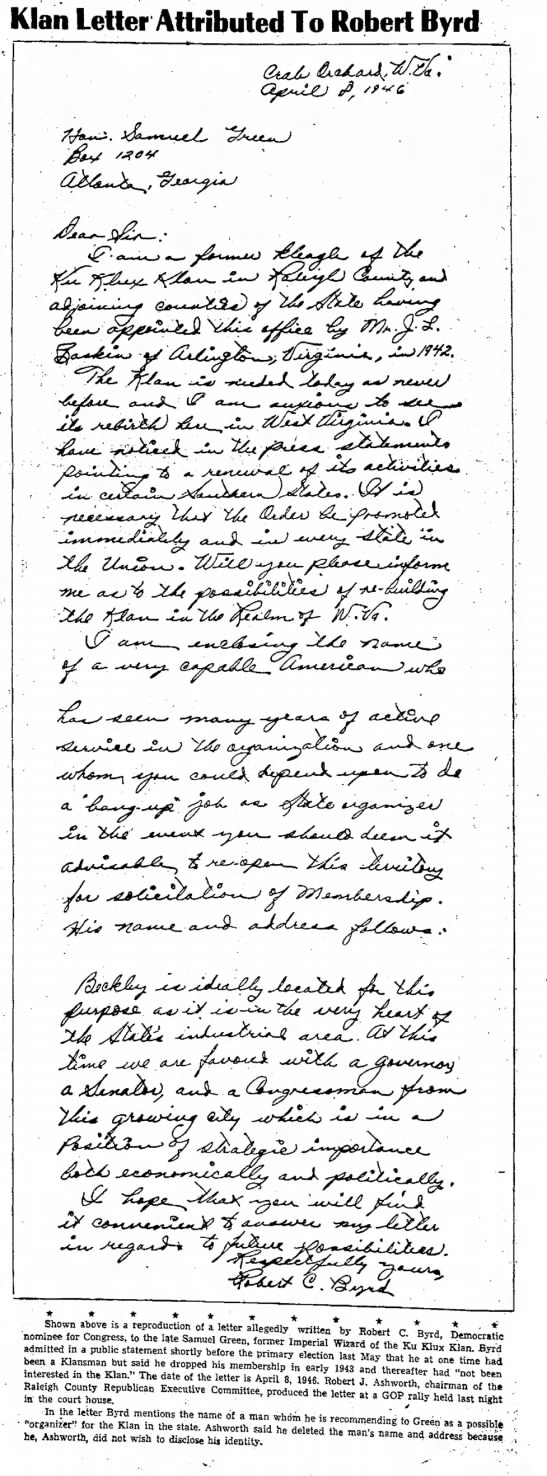 Klan Letter Attributed To Robert Byrd
Crab Orchard, W. Va.
April 8, 1946
Hon. Samuel Green
Box 1204
Atlanta, Georgia
Dear Sir:
I am a former Kleagle of the
Ku Klux Klan in Raleigh County and
adjoining counties of the State having
been appointed this office by Mr. J. L.
Baskin of Arlington, Virginia, in 1942.
The Klan is needed today as never
before and I am anxious to see
its rebirth here in West Virginia. I
have noticed in the press statements
pointing to a renewal of its activities
in certain Southern States. It is
necessary that the Order be promoted
immediately and in every state in
the Union. Will you please inform
me as to the possibilities of re-building
the Klan in the Realm of W. Va.
I am enclosing the name
of a very capable American who
has seen many years of active
service in the organization and one
whom you could depend upon to do
a "bang-up" job as State organizer
in the event you should deem it
advisable to re-open this territory
for solicitation of Membership.
His name and address follows:
Beckley is ideally located for this
purpose as it is in the very heart of
the State's industrial area. At this
time we are favored with a governor,
a Senator, and a Congressman from
this growing city which is in a
position of strategic importance
both economically and politically.
I hope that you will find
it convenient to answer my letter
in regards to future possibilities.
Respectfully yours,
Robert C. Byrd
★ ★ ★ ★ ★ ★ ★ ★ ★ ★
Shown above is a reproduction of a letter allegedly written by Robert C. Byrd, Democratic
nominee for Congress, to the late Samuel Green, former Imperial Wizard of the Ku Klux Klan. Byrd
admitted in a public statement shortly before the primary election last May that he at one time had
been a Klansman but said he dropped his membership in early 1943 and thereafter had "not been
interested in the Klan." The date of the letter is April 8, 1946. Robert J. Ashworth, chairman of the
Raleigh County Republican Executive Committee, produced the letter at a GOP rally held last night
in the court house.
In the letter Byrd mentions the name of a man whom he is recommending to Green as a possible
"organizer" for the Klan in the state. Ashworth said he deleted the man's name and address because
he, Ashworth, did not wish to disclose his identity.